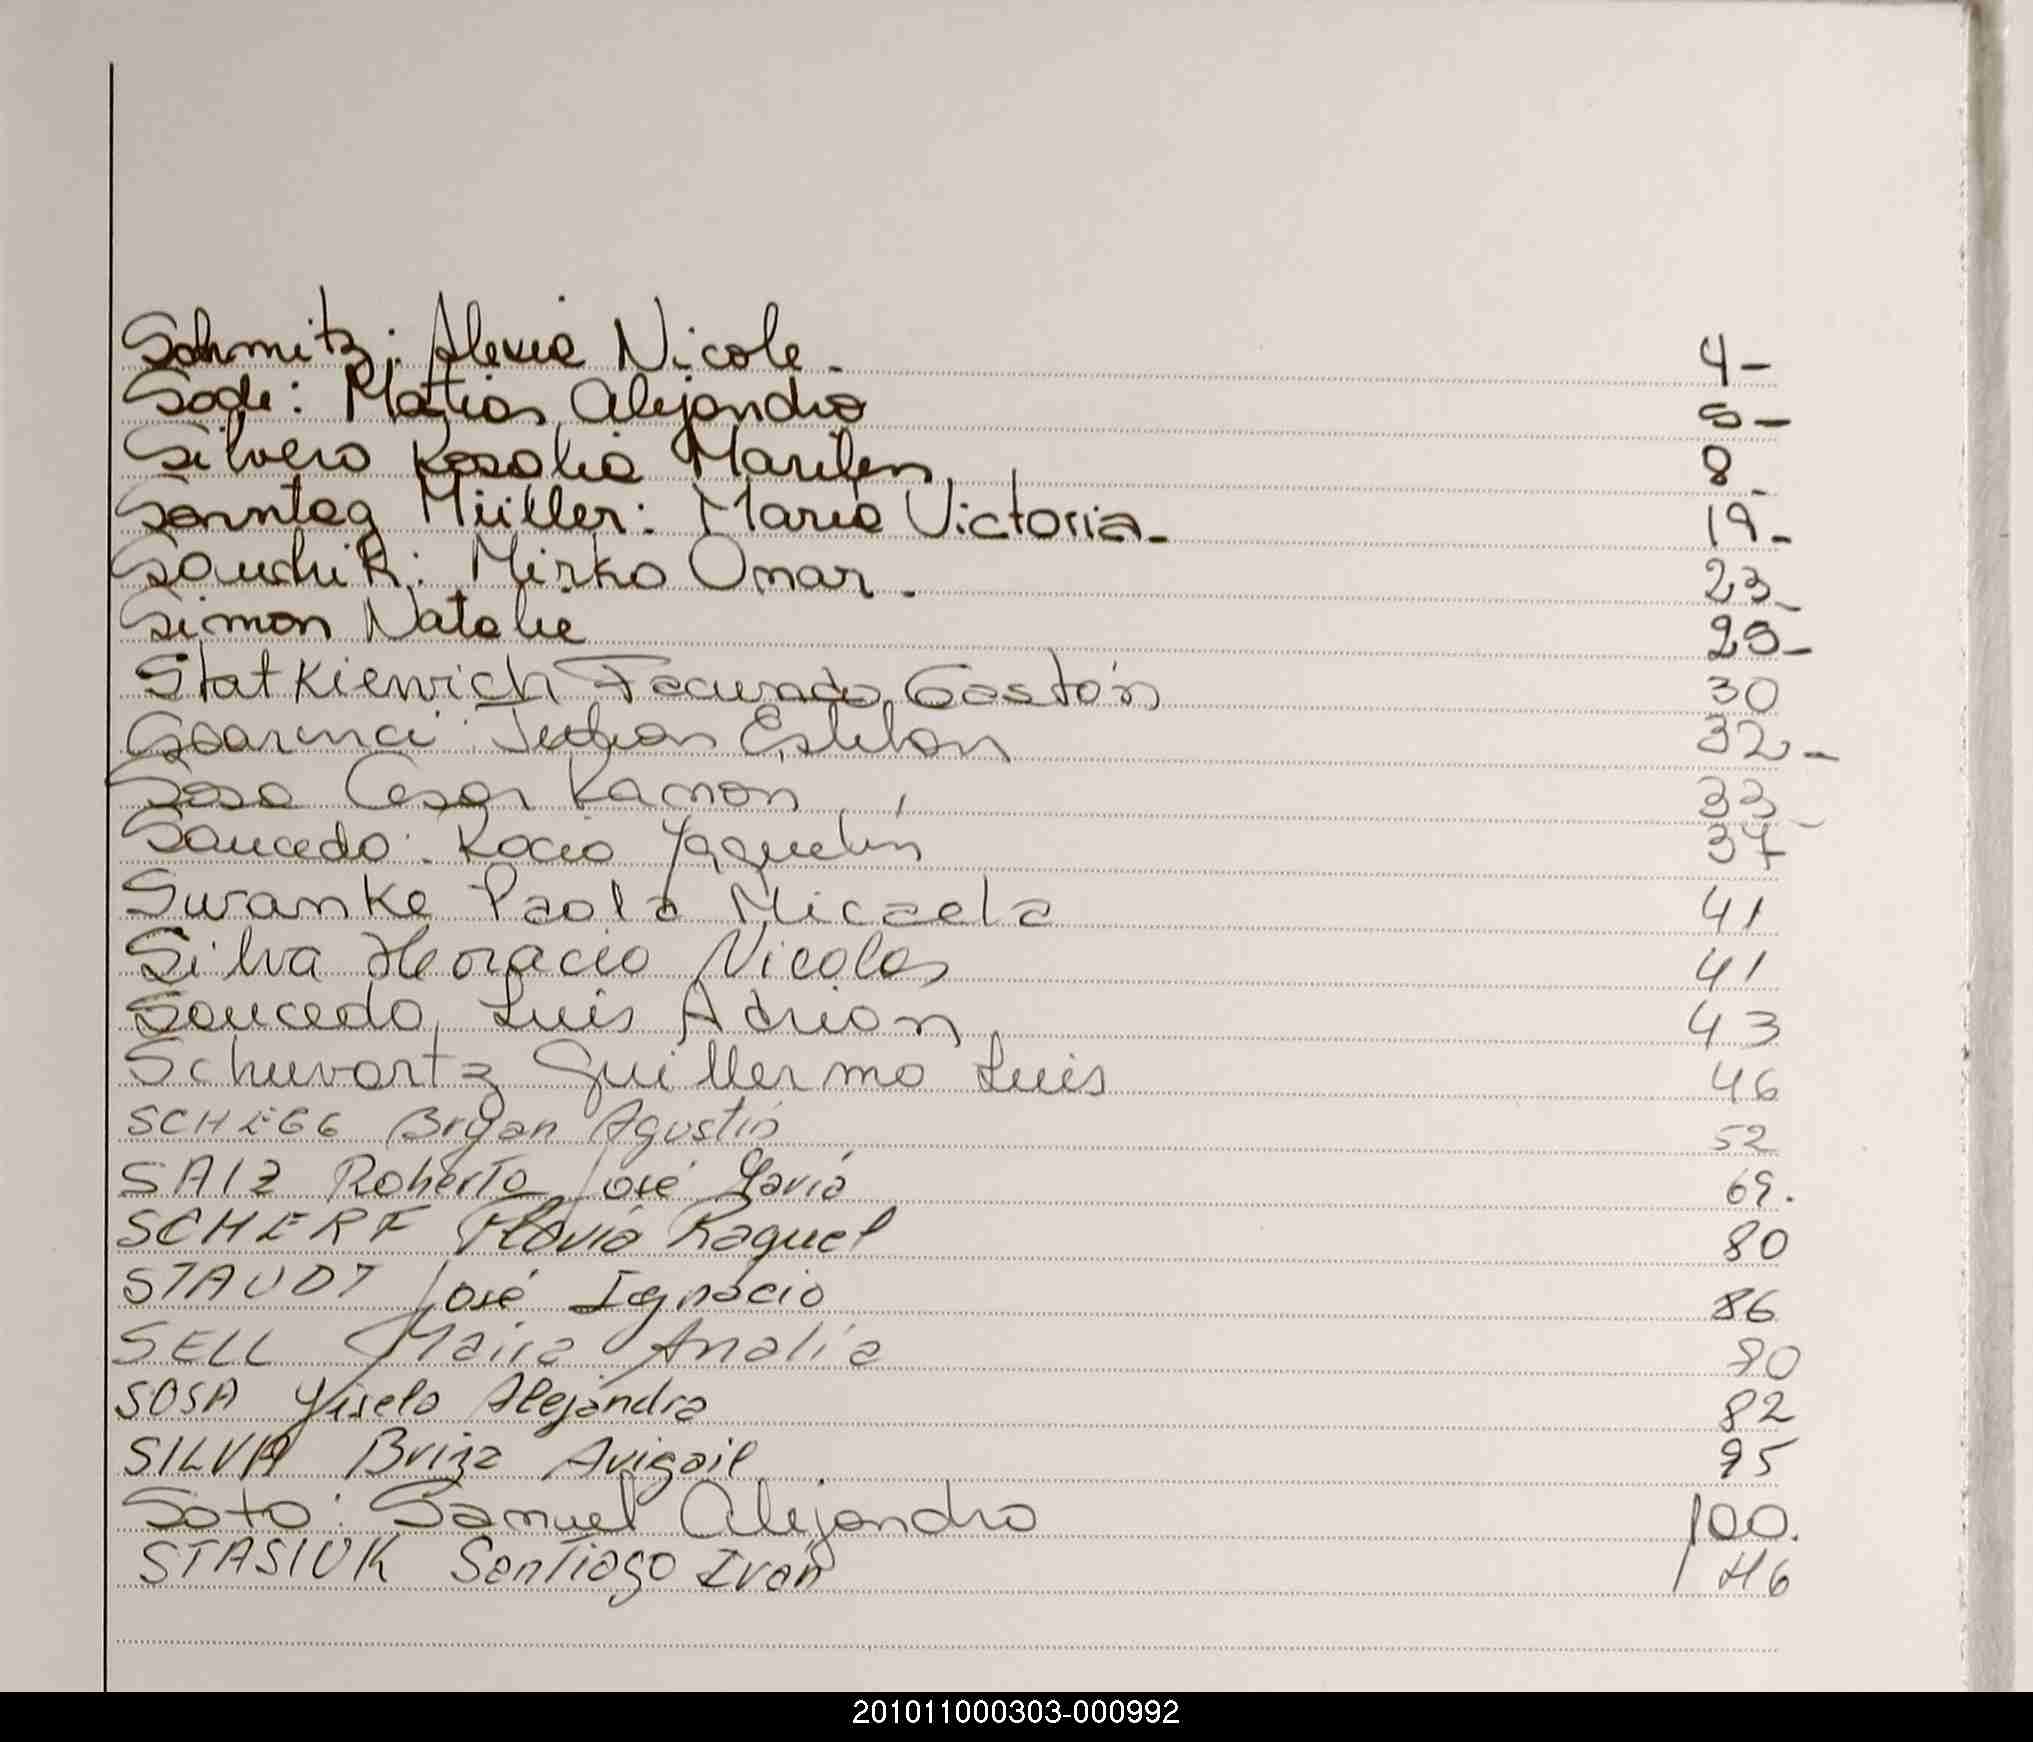 Schmitz: Alexia Nicole. 4-
Sode: Matias Alejandro 5-
Silvero Rosalia Marilen 8-
Sonntag Müller: Maria Victoria- 19-
Mirko Omar. 23-
Simon Natalie 25-
Statkiewich Facundo Gastón 30
Esteban 32-
Sosa Cesar Ramon 33-
Saucedo: Rocio Yaquelin 37
Swanke Paola Micaela 41
Silva Horacio Nicolas 41
Saucedo, Luis Adrian 43
Schwartz Guillermo Luis 46
SCHEGG Bryan Agustín 52
SAIZ Roberto José 69.
SCHERF Flavia Raquel 80
STAUDT José Ignacio 86
SELL Maira Analía 90
SOSA Yisela Alejandra 82
SILVA Briza Avigail 95
Soto: Samuel Alejandro 100.
STASIUK Santiago Ivan 146
201011000303-000992